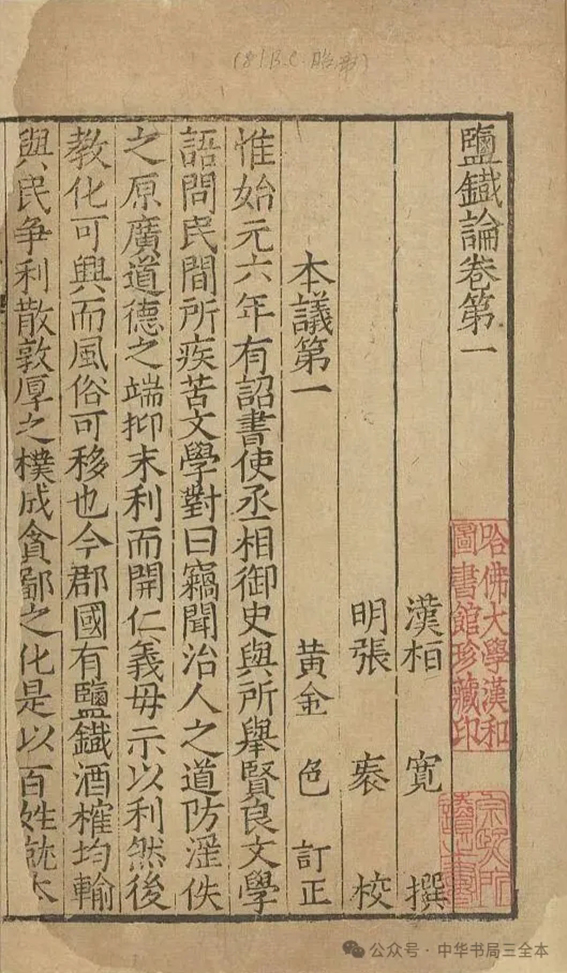 (81 B.C. 昭帝)
鹽鐵論卷第一
哈佛大學漢和
圖書館珍藏印
漢桓寬撰
明張袠校
本議第一 黃金色訂正
惟始元六年有詔書使丞相御史與所舉賢良文學
語問民間所疾苦文學對曰竊聞治人之道防淫佚
之原廣道德之端抑末利而開仁義毋示以利然後
教化可興而風俗可移也今郡國有鹽鐵酒榷均輸
與民爭利散敦厚之樸成貪鄙之化是以百姓就本
公众号·中华书局三全本